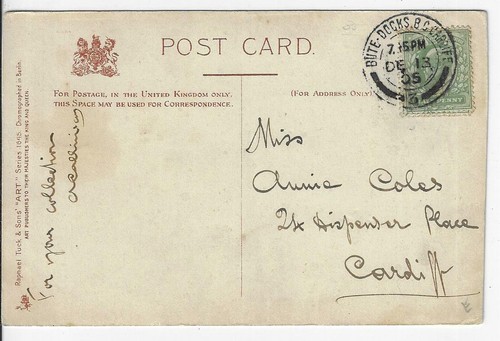 POST CARD.
FOR POSTAGE, IN THE UNITED KINGDOM ONLY,
THIS SPACE MAY BE USED FOR CORRESPONDENCE.
(FOR ADDRESS ONLY)
BUTE-DOCKS. B.O. CARDIFF
7.15PM
DE 13
05
PENNY
Raphael Tuck & Sons' "ART" Series 1695. Chromographed in Berlin.
ART PUBLISHERS TO THEIR MAJESTIES THE KING AND QUEEN.
For your collection
Miss
Annie Coles
24 Dispenser Place
Cardiff